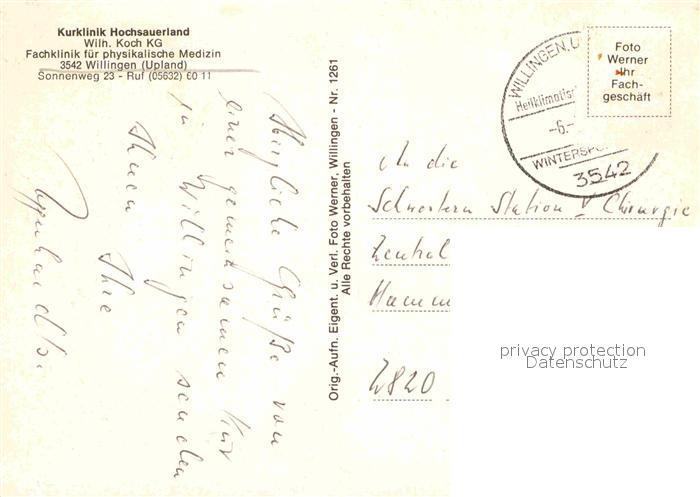 Kurklinik Hochsauerland
Wilh. Koch KG
Fachklinik für physikalische Medizin
3542 Willingen (Upland)
Sonnenweg 23 - Ruf (05632) 60 11
Herzliche Grüße von
einer gemeinsamen Kur
in Willingen senden
Ihnen
Ihre
Orig.-Aufn. Eigent. u. Verl. Foto Werner, Willingen - Nr. 1261
Alle Rechte vorbehalten
WILLINGEN, U
Heilklimatis
-6.-
WINTERSP
3542
Foto
Werner
Ihr
Fach-
geschäft
An die
Schwestern Station V Chirurgie
Zentral
Hamm
2820
privacy protection
Datenschutz